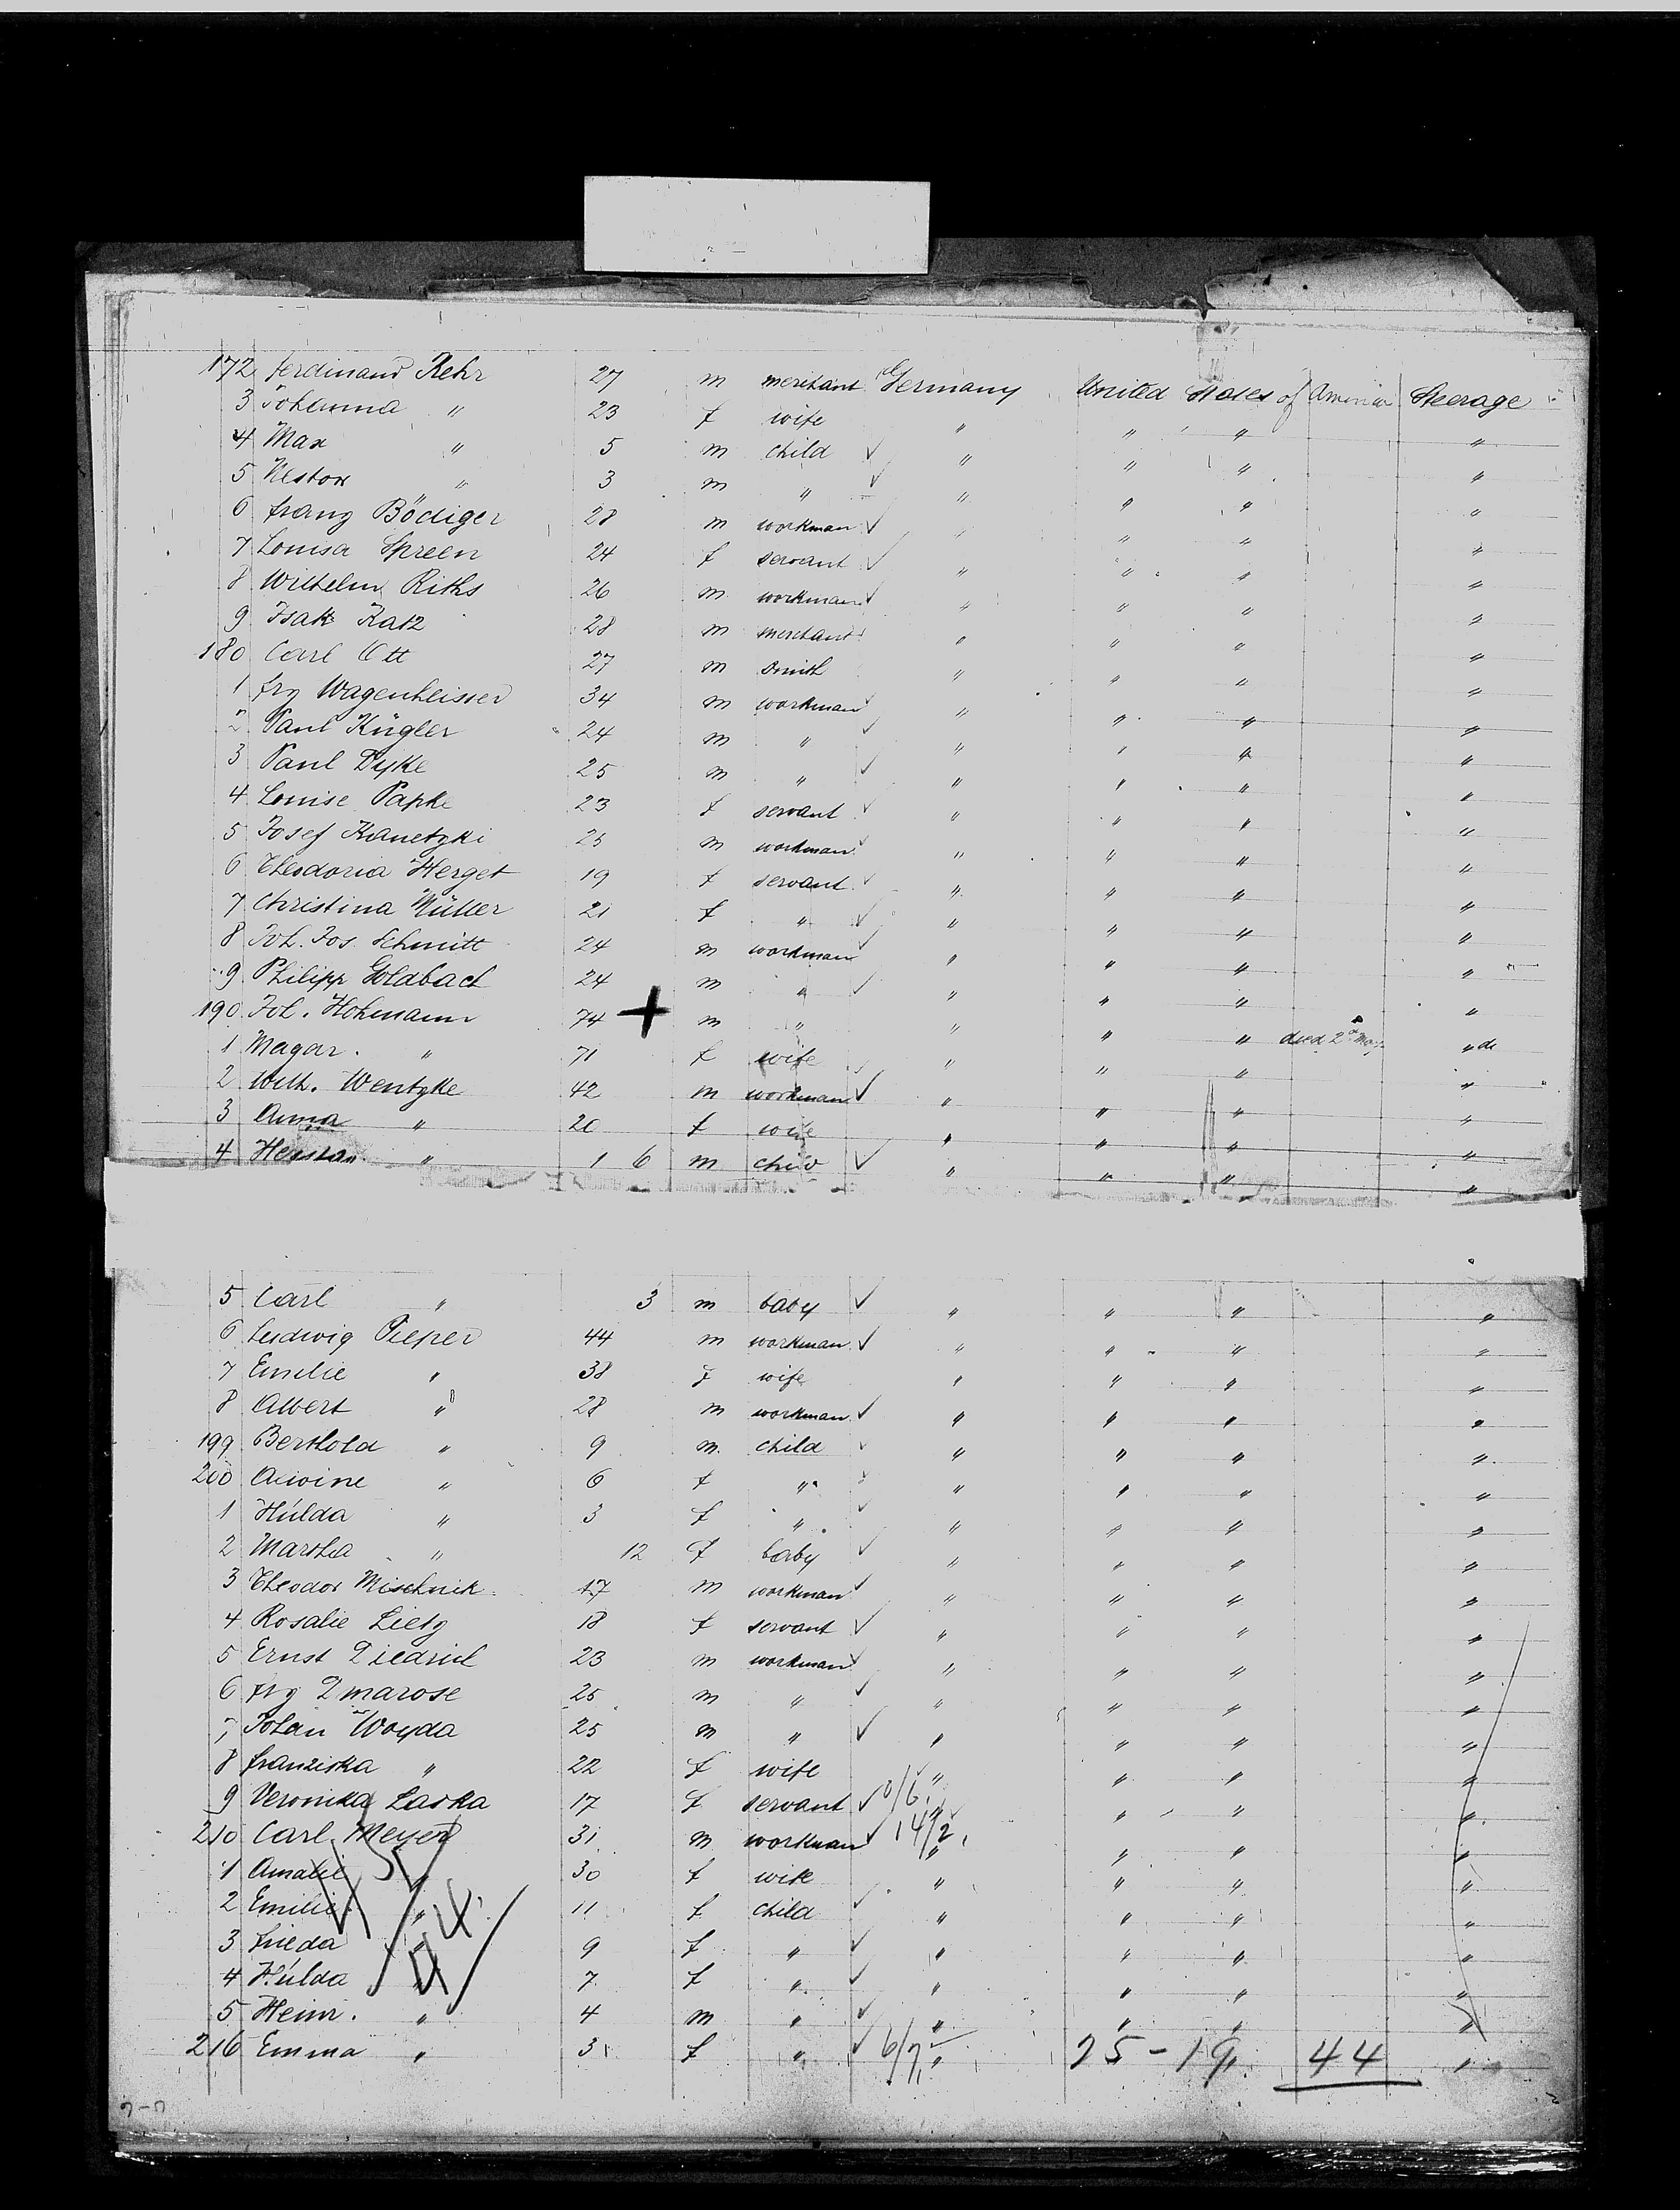 172 Ferdinand Rehr 27 m merchant Germany United States of America Steerage
3 Johanna " 23 f wife " " " "
4 Max " 5 m child ✓ " " " "
5 Nestor " 3 m " ✓ " " " "
6 Franz Bödiger 28 m workman ✓ " " " "
7 Louisa Spreen 24 f servant ✓ " " " "
8 Wilhelm Riths 26 m workman ✓ " " " "
9 Isak Katz 28 m merchant " " " "
180 Carl Ott 27 m Smith " " " "
1 Frz Wagenheisser 34 m workman ✓ " " " "
2 Paul Kügler 24 m " ✓ " " " "
3 Paul Dyke 25 m " ✓ " " " "
4 Louise Papke 23 f servant ✓ " " " "
5 Josef Kanetzki 25 m workman ✓ " " " "
6 Theodoria Herget 19 f servant ✓ " " " "
7 Christina Müller 21 f " ✓ " " " "
8 Joh. Jos. Schmitt 24 m workman ✓ " " " "
9 Philipp Goldbach 24 m " ✓ " " " "
190 Joh. Hohmann 74 + m " " " " died 2d May "
1 Magar. " 71 f wife " " " "
2 Wilh. Wentzke 42 m workman ✓ " " " "
3 Anna " 20 f wife " " " "
4 Herman " 1 6 m child ✓ " " " "
5 Carl " 3 m baby ✓ " " " "
6 Ludwig Pieper 44 m workman ✓ " " " "
7 Emilie " 38 f wife " " " "
8 Albert " 28 m workman ✓ " " " "
199 Berthold " 9 m child ✓ " " " "
200 Alwine " 6 f " ✓ " " " "
1 Hulda " 3 f " ✓ " " " "
2 Martha " 12 f baby ✓ " " " "
3 Theodor Mischnik 17 m workman ✓ " " " "
4 Rosalie Lietz 18 f servant ✓ " " " "
5 Ernst Diedrich 23 m workman ✓ " " " "
6 Frz Dmarose 25 m " ✓ " " " "
7 Johan Woyda 25 m " ✓ " " " "
8 Franziska " 22 f wife " " " "
9 Veronika Laska 17 f servant ✓ " " " "
210 Carl Meyer 31 m workman ✓ 14/2 " " " "
1 Amalie " 30 f wife " " " "
2 Emilie " 11 f child ✓ " " " "
3 Frieda " 9 f " ✓ " " " "
4 Hulda " 7 f " ✓ " " " "
5 Heinr. " 4 m " ✓ " " " "
216 Emma " 3 f " ✓ 6/7 " 25-19 44 "